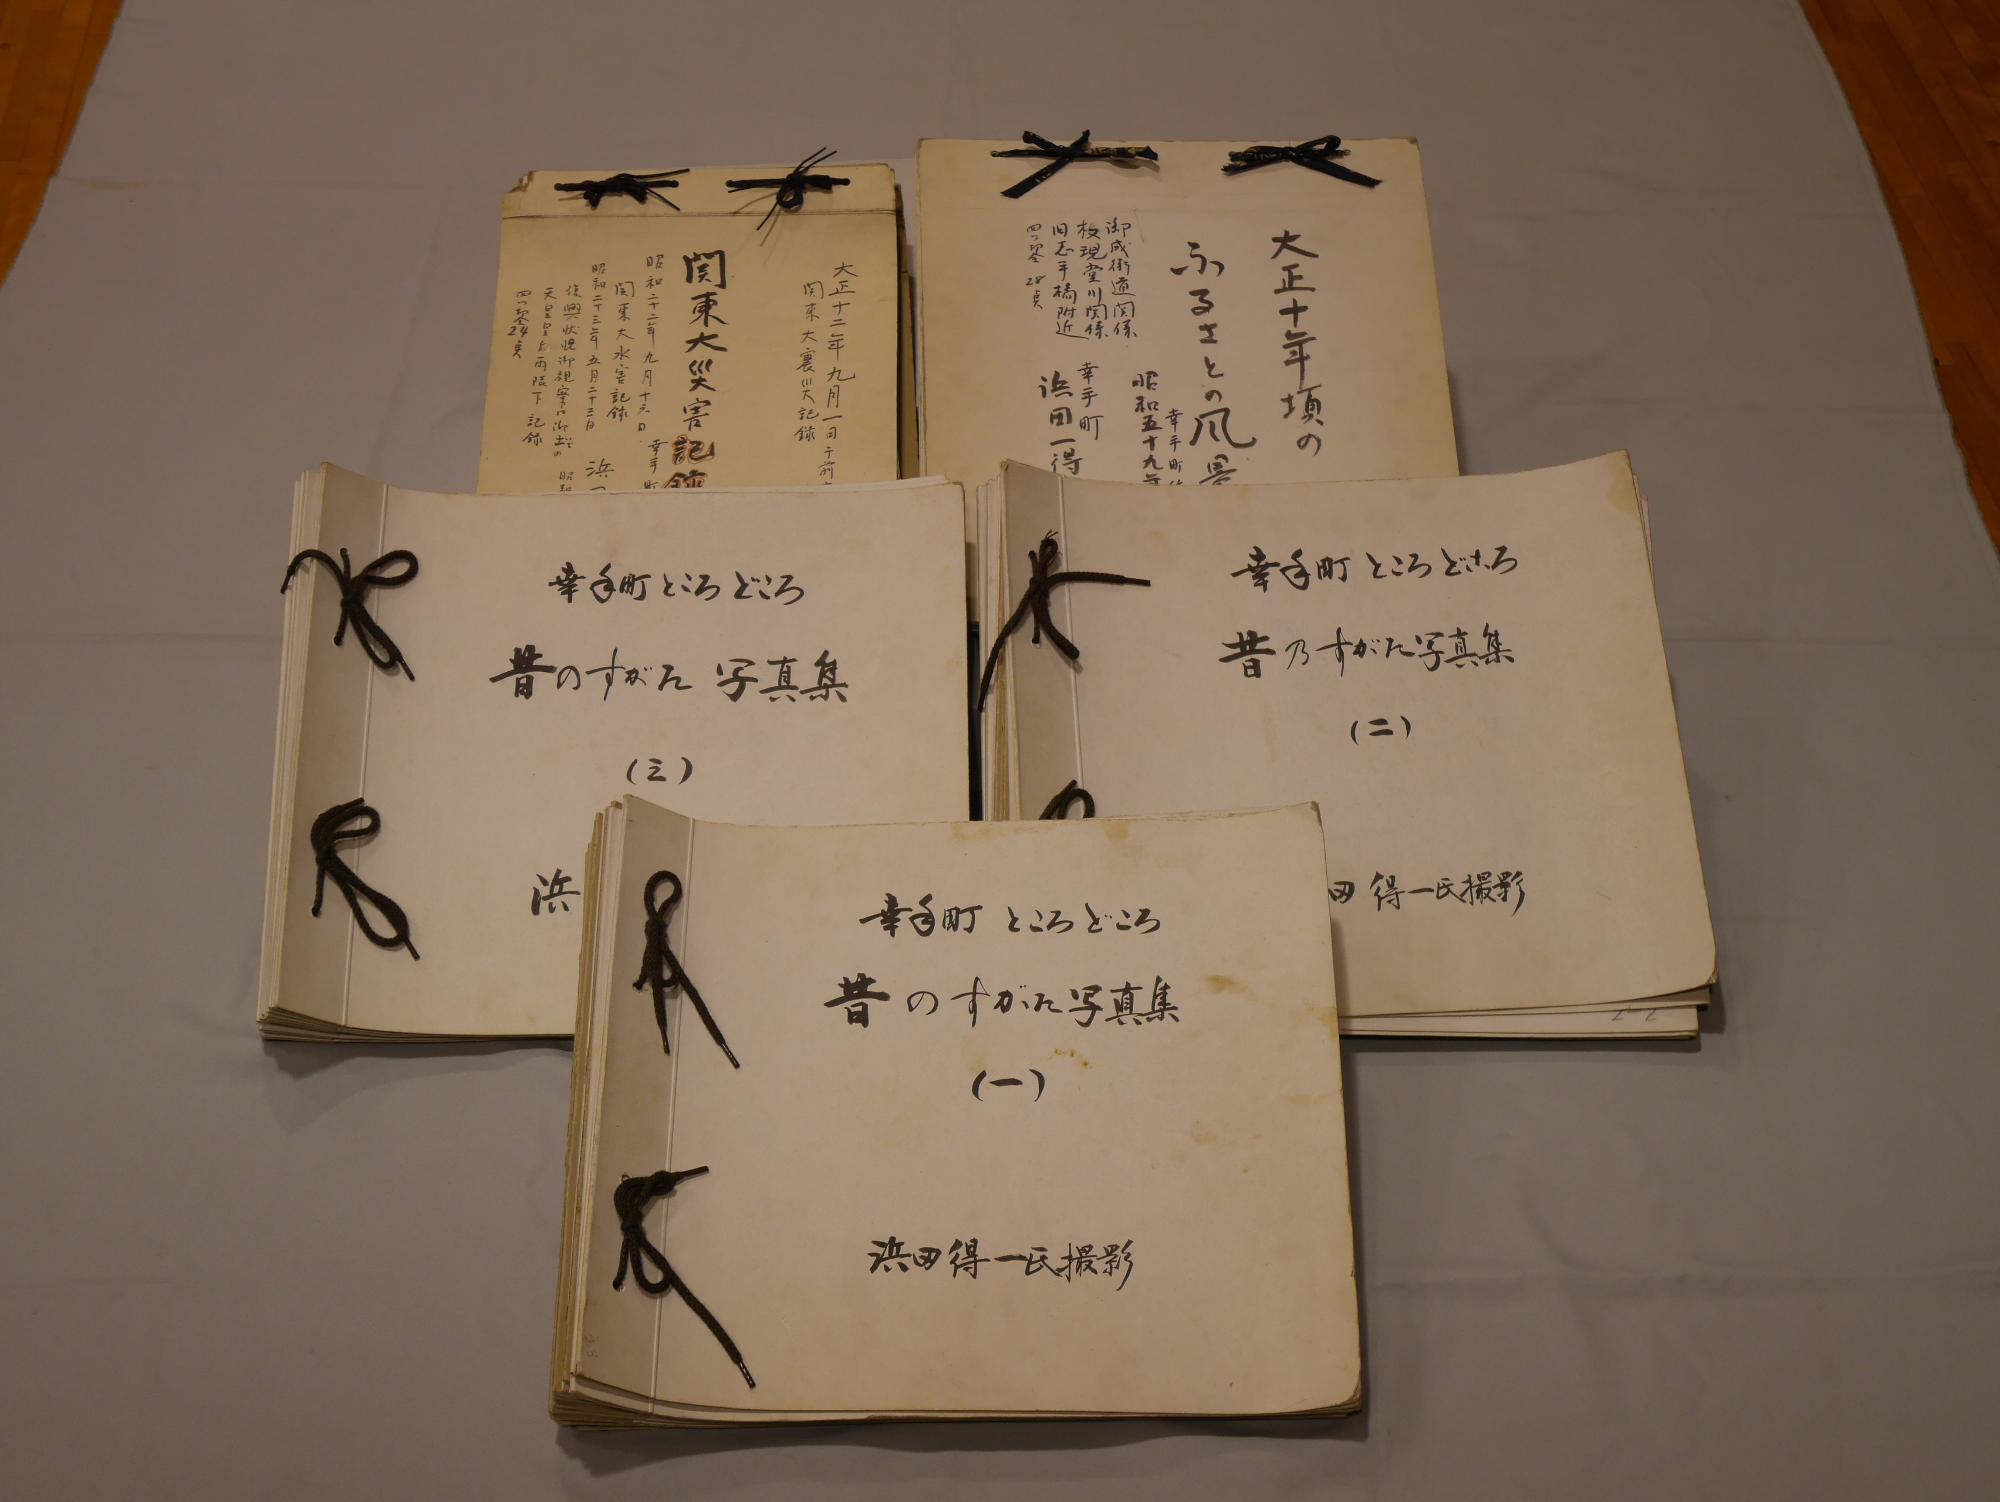 大正十二年九月一日午前
関東大震災記録
関東大災害記録
昭和二十二年九月十六日
関東大水害記録
幸手町
昭和二十三年五月二十三日
浜
天皇皇后両陛下 記録
四ツ切24点
大正十年頃の
ふるさとの風景
御成街道関係
権現堂川関係
旧志手橋附近
四ツ切 28点
幸手町
昭和五十九年
幸手町
浜田一得
幸手町ところどころ
昔のすがた 写真集
(三)
浜
幸手町ところどころ
昔乃すがた写真集
(二)
田得一氏撮影
幸手町 ところどころ
昔のすがた写真集
(一)
浜田得一氏撮影